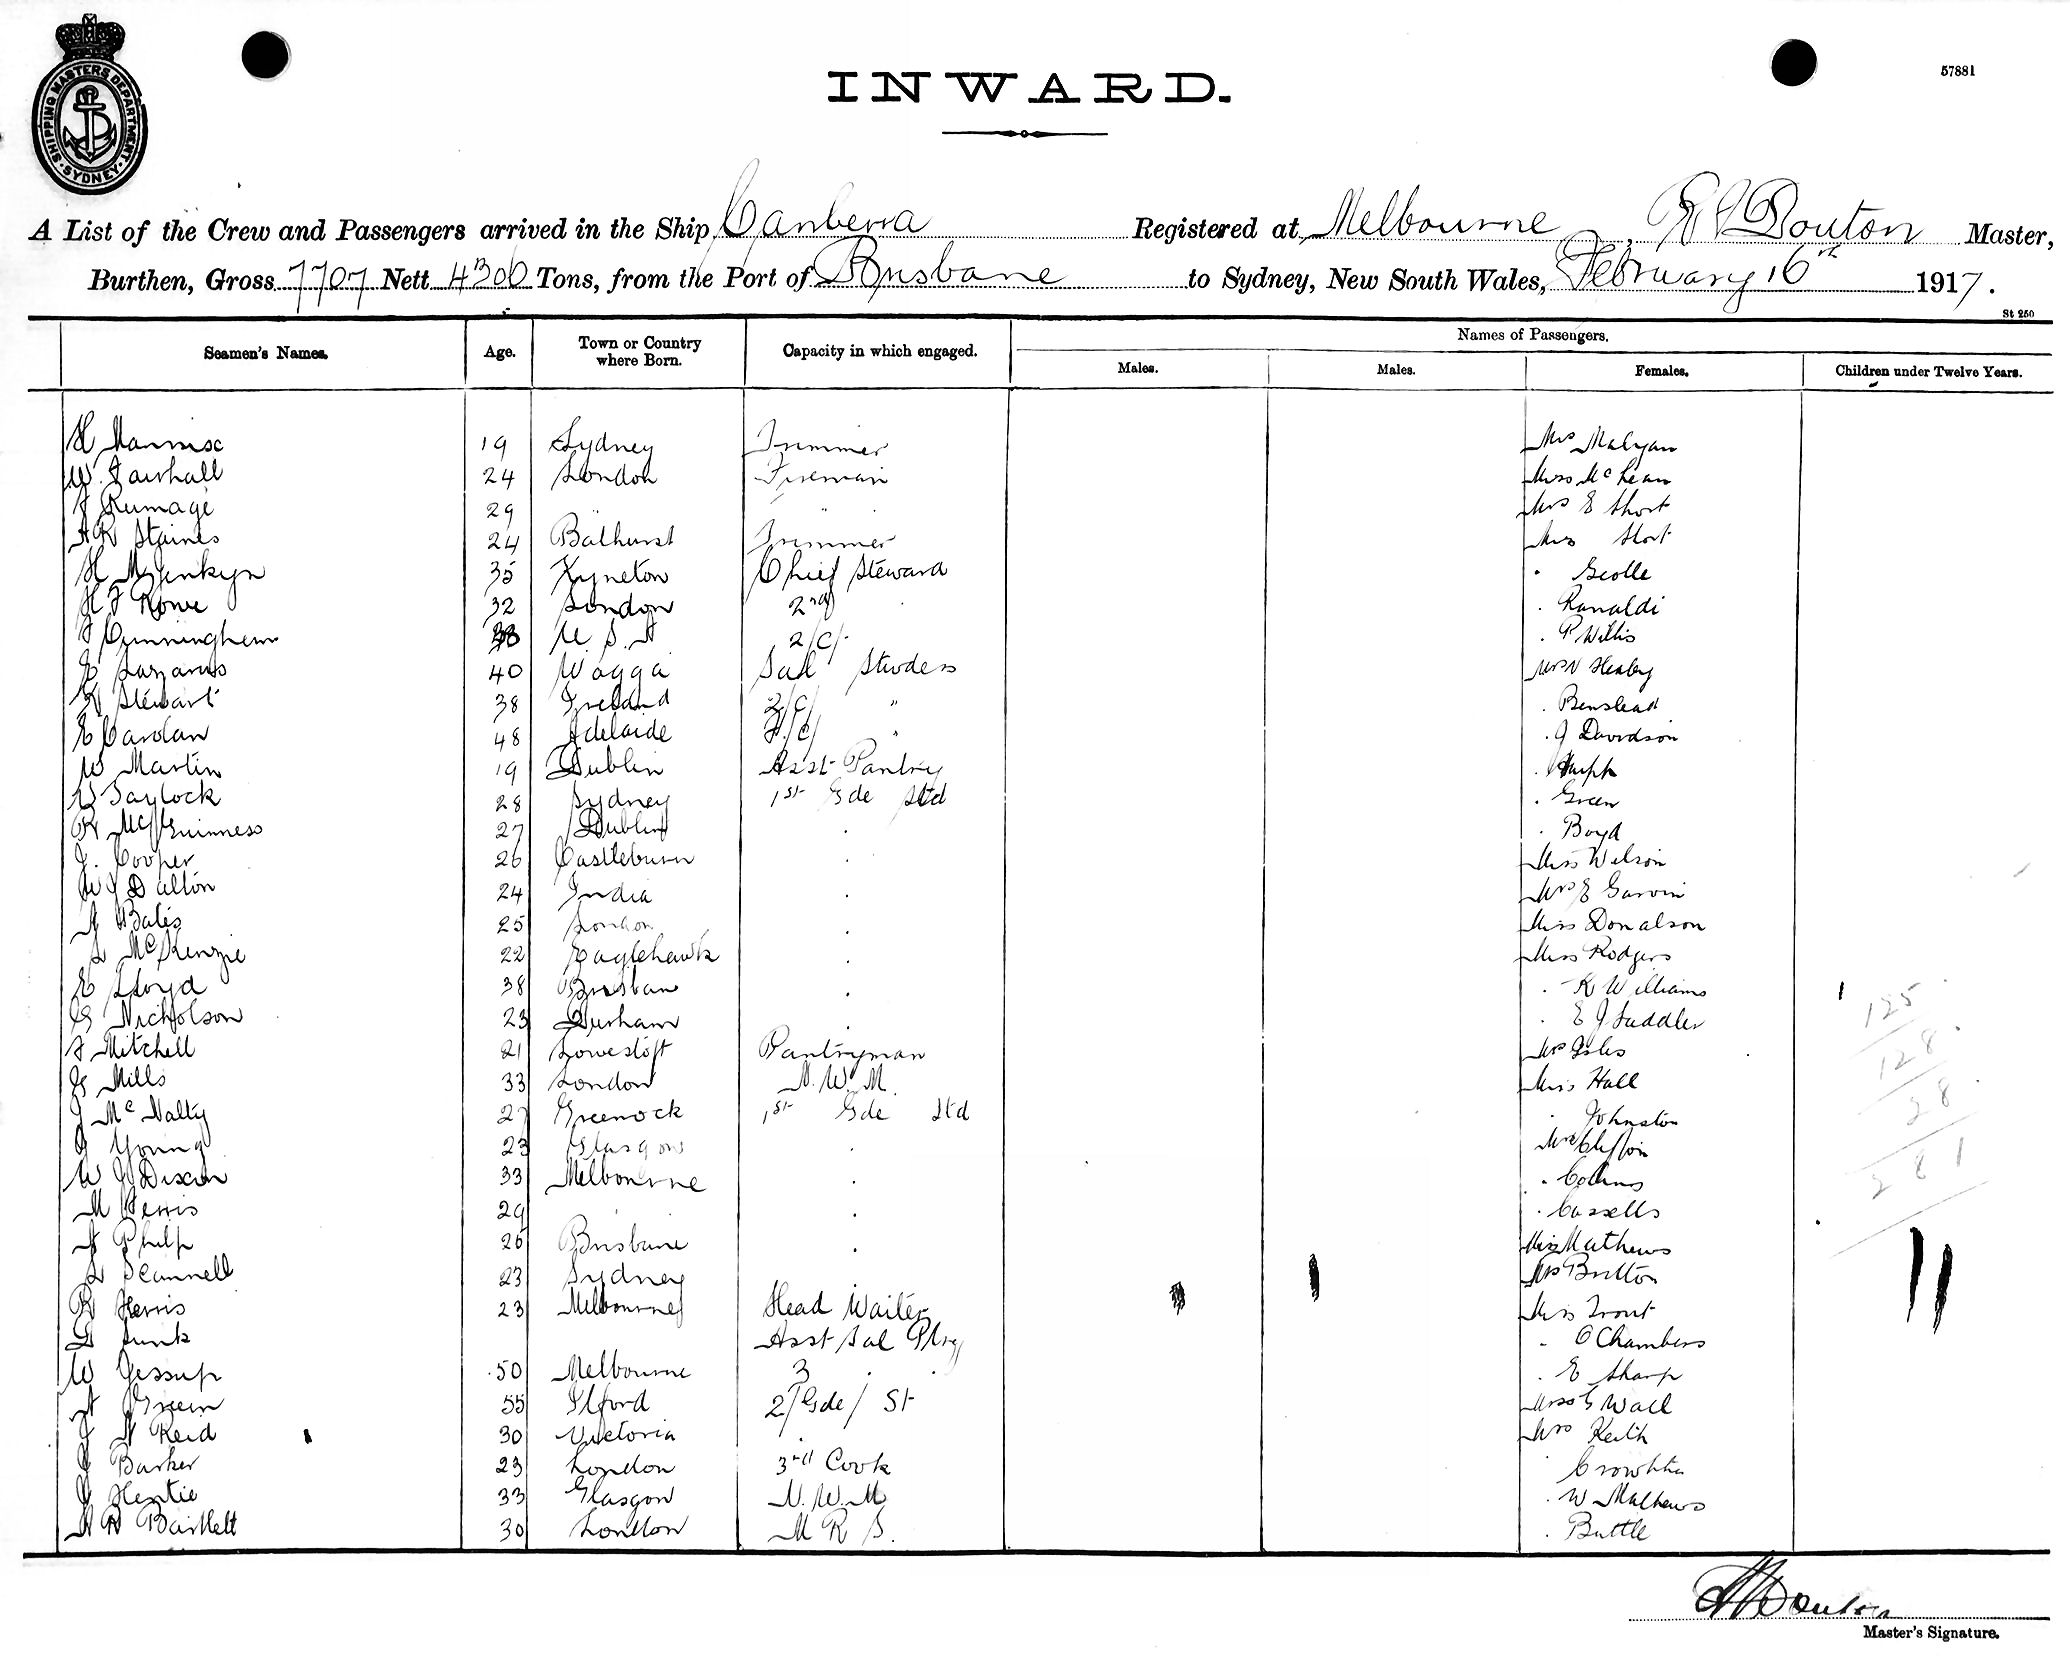 SHIPPING MASTERS DEPARTMENT · SYDNEY ·
57881
INWARD.
A List of the Crew and Passengers arrived in the Ship Canberra Registered at Melbourne, Douton Master,
Burthen, Gross 7707 Nett 4300 Tons, from the Port of Brisbane to Sydney, New South Wales, February 16th 1917.
St 250
Seamen's Names. Age. Town or Country where Born. Capacity in which engaged. Names of Passengers.
Males. Males. Females. Children under Twelve Years.
H 19 Sydney Trimmer Mrs Malyan
W. Fairhall 24 London Fireman Miss McLean
J Rumage 29 " " Mrs E Short
A R Staines 24 Bathurst Trimmer Miss Short
H M Jenkyn 35 Kyneton Chief Steward "
H J Rowe 32 London 2nd " Ranaldi
J Cunningham U.S.A 2/C/- " P Willis
E Lazarus 40 Wagga Sal Stwdess Mrs N Healey
Stewart 38 Ireland 2/C/ " " Benstead
E Carolan 48 Adelaide " " J Davidson
W Martin 19 Dublin Asst Pantry "
W Taylock 28 Sydney 1st Gde Std " Green
R McGuinness 27 Dublin " " Boyd
J. Cooper 26 Castleburn " Miss Wilson
W J Dalton 24 India " Mrs E Garvin
A Bates 25 London " Miss Donalson
L McKenzie 22 Eaglehawk " Miss Rodgers
E Lloyd 38 Brisban " " K Williams
G Nicholson 23 Durham " " E J Saddler
J Mitchell 21 Lowestoft Pantryman Mrs Isles
G Mills 33 London N.W.M. Miss Hall
J McNalty 27 Greenock 1st Gde Std " Johnston
J Young 23 Glasgow " Mrs Clifton
W J Dixon 33 Melbourne " " Collins
M 29 " " " Cassells
A Philp 26 Brisbane " Miss Mathews
L Scannell 23 Sydney " Mrs Britton
R Herris 23 Melbourne Head Waiter Miss Trout
G Funk Asst Sal " O Chambers
W Jessup 50 Melbourne 3 " " E Sharp
A Green 55 Ilford 2/Gde/ St Miss G Wall
J A Reid 30 Victoria " Mrs Keith
J Barker 23 London 3rd Cook " Crowhter
J Hentie 33 Glasgow N.W.M " W Mathews
A R Bartlett 30 London M R S. " Buttle
125
128
28
281
Master's Signature.